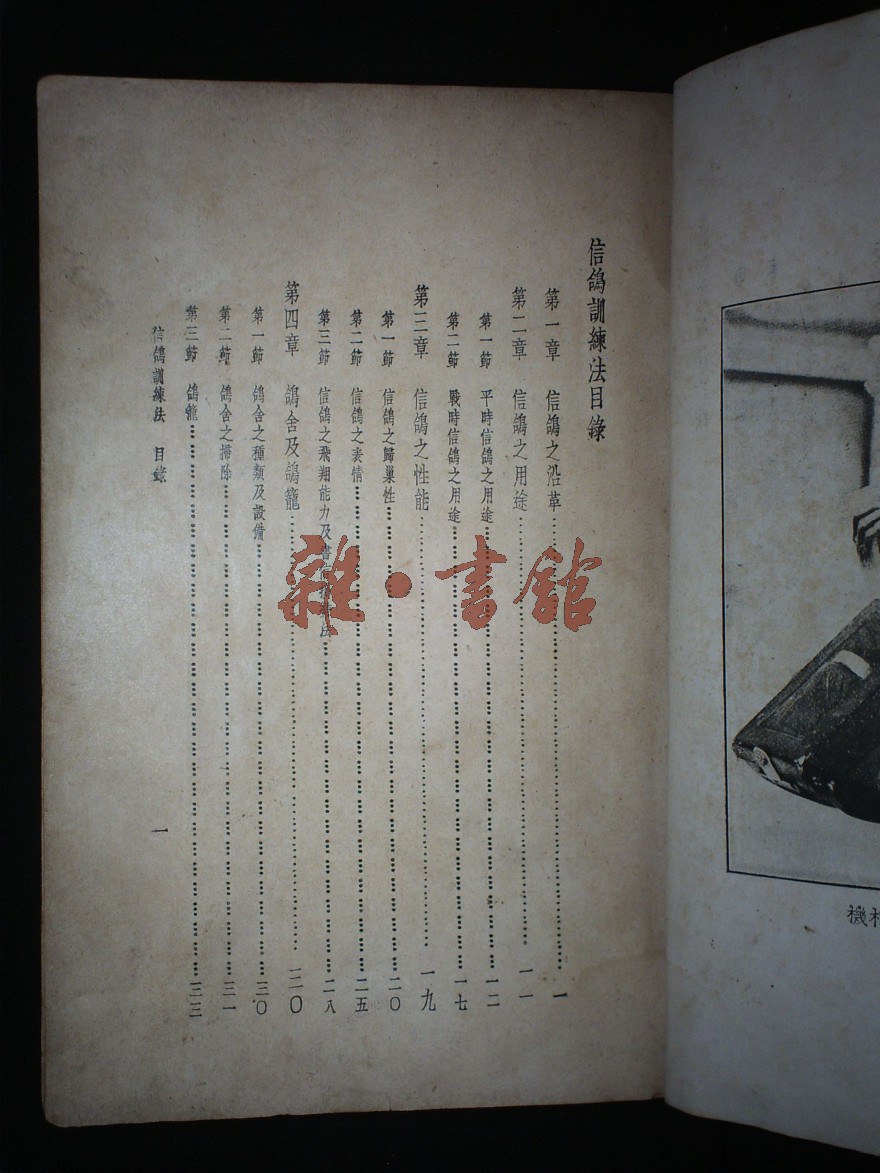 機
信鴿訓練法目錄
第一章 信鴿之沿革…………一
第二章 信鴿之用途…………一一
第一節 平時信鴿之用途…………一二
第二節 戰時信鴿之用途…………一七
第三章 信鴿之性能…………一九
第一節 信鴿之歸巢性…………二〇
第二節 信鴿之表情…………二五
第三節 信鴿之飛翔能力及書信法…………二八
第四章 鴿舍及鴿籠…………三〇
第一節 鴿舍之種類及設備…………三〇
第二節 鴿舍之掃除…………三一
第三節 鴿籠…………三三
信鴿訓練法 目錄
一
雜·書館